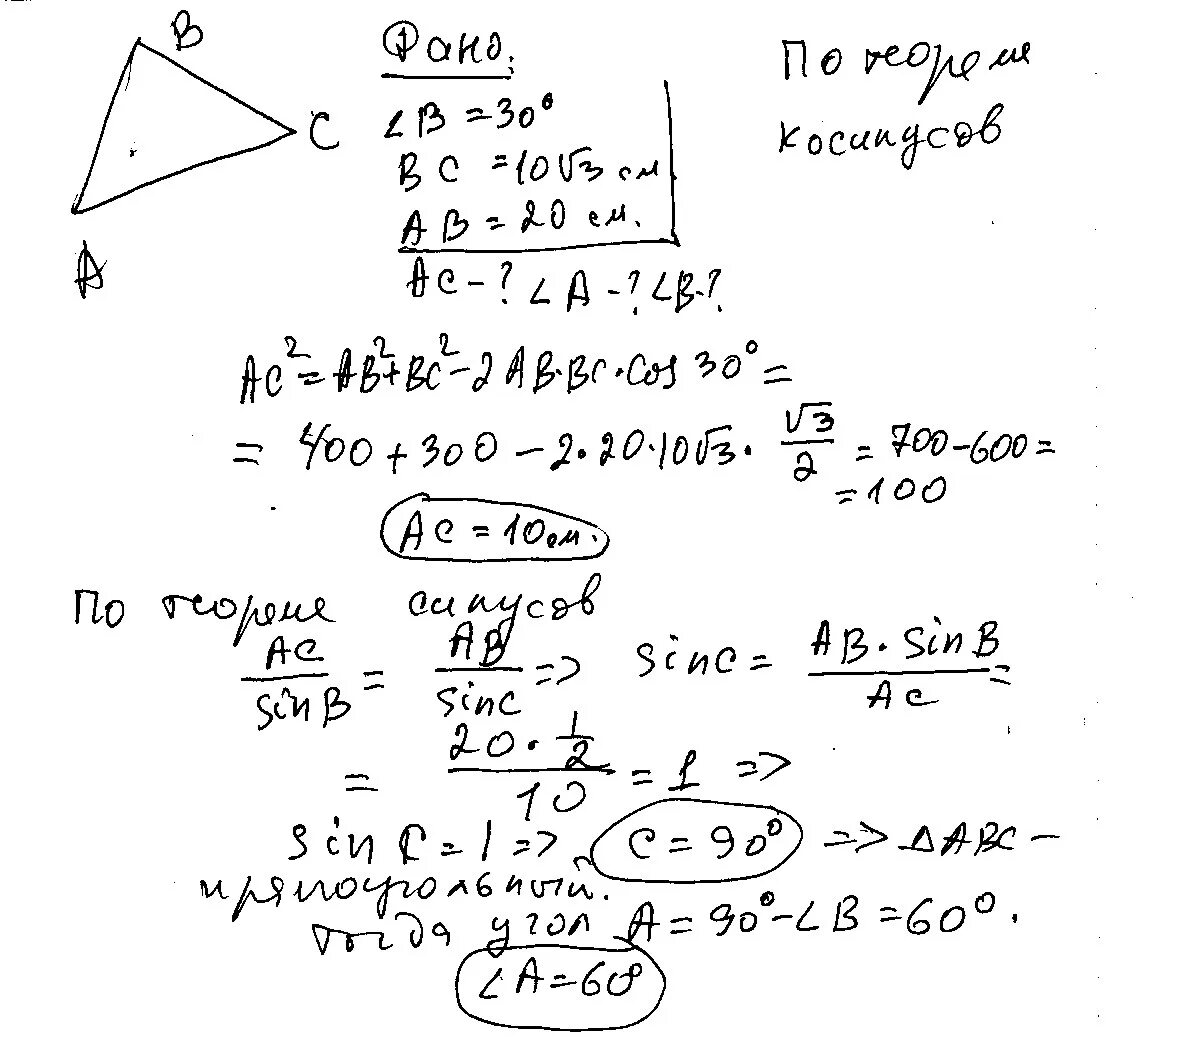 B
C
A
Дано:
∠B = 30°
BC = 10√3 см
AB = 20 см.
AC - ? ∠A - ? ∠B - ?
По теореме
косинусов
AC² = AB² + BC² - 2AB·BC·cos 30° =
= 400 + 300 - 2·20·10√3 · √3/2 = 700 - 600 =
= 100
AC = 10 см.
По теореме синусов
AC/sinB = AB/sinC => sinC = AB·sinB/AC =
= 20·1/2/10 = 1 =>
sin C = 1 => C = 90° => ΔABC -
прямоугольный.
тогда угол A = 90° - ∠B = 60°.
∠A = 60°